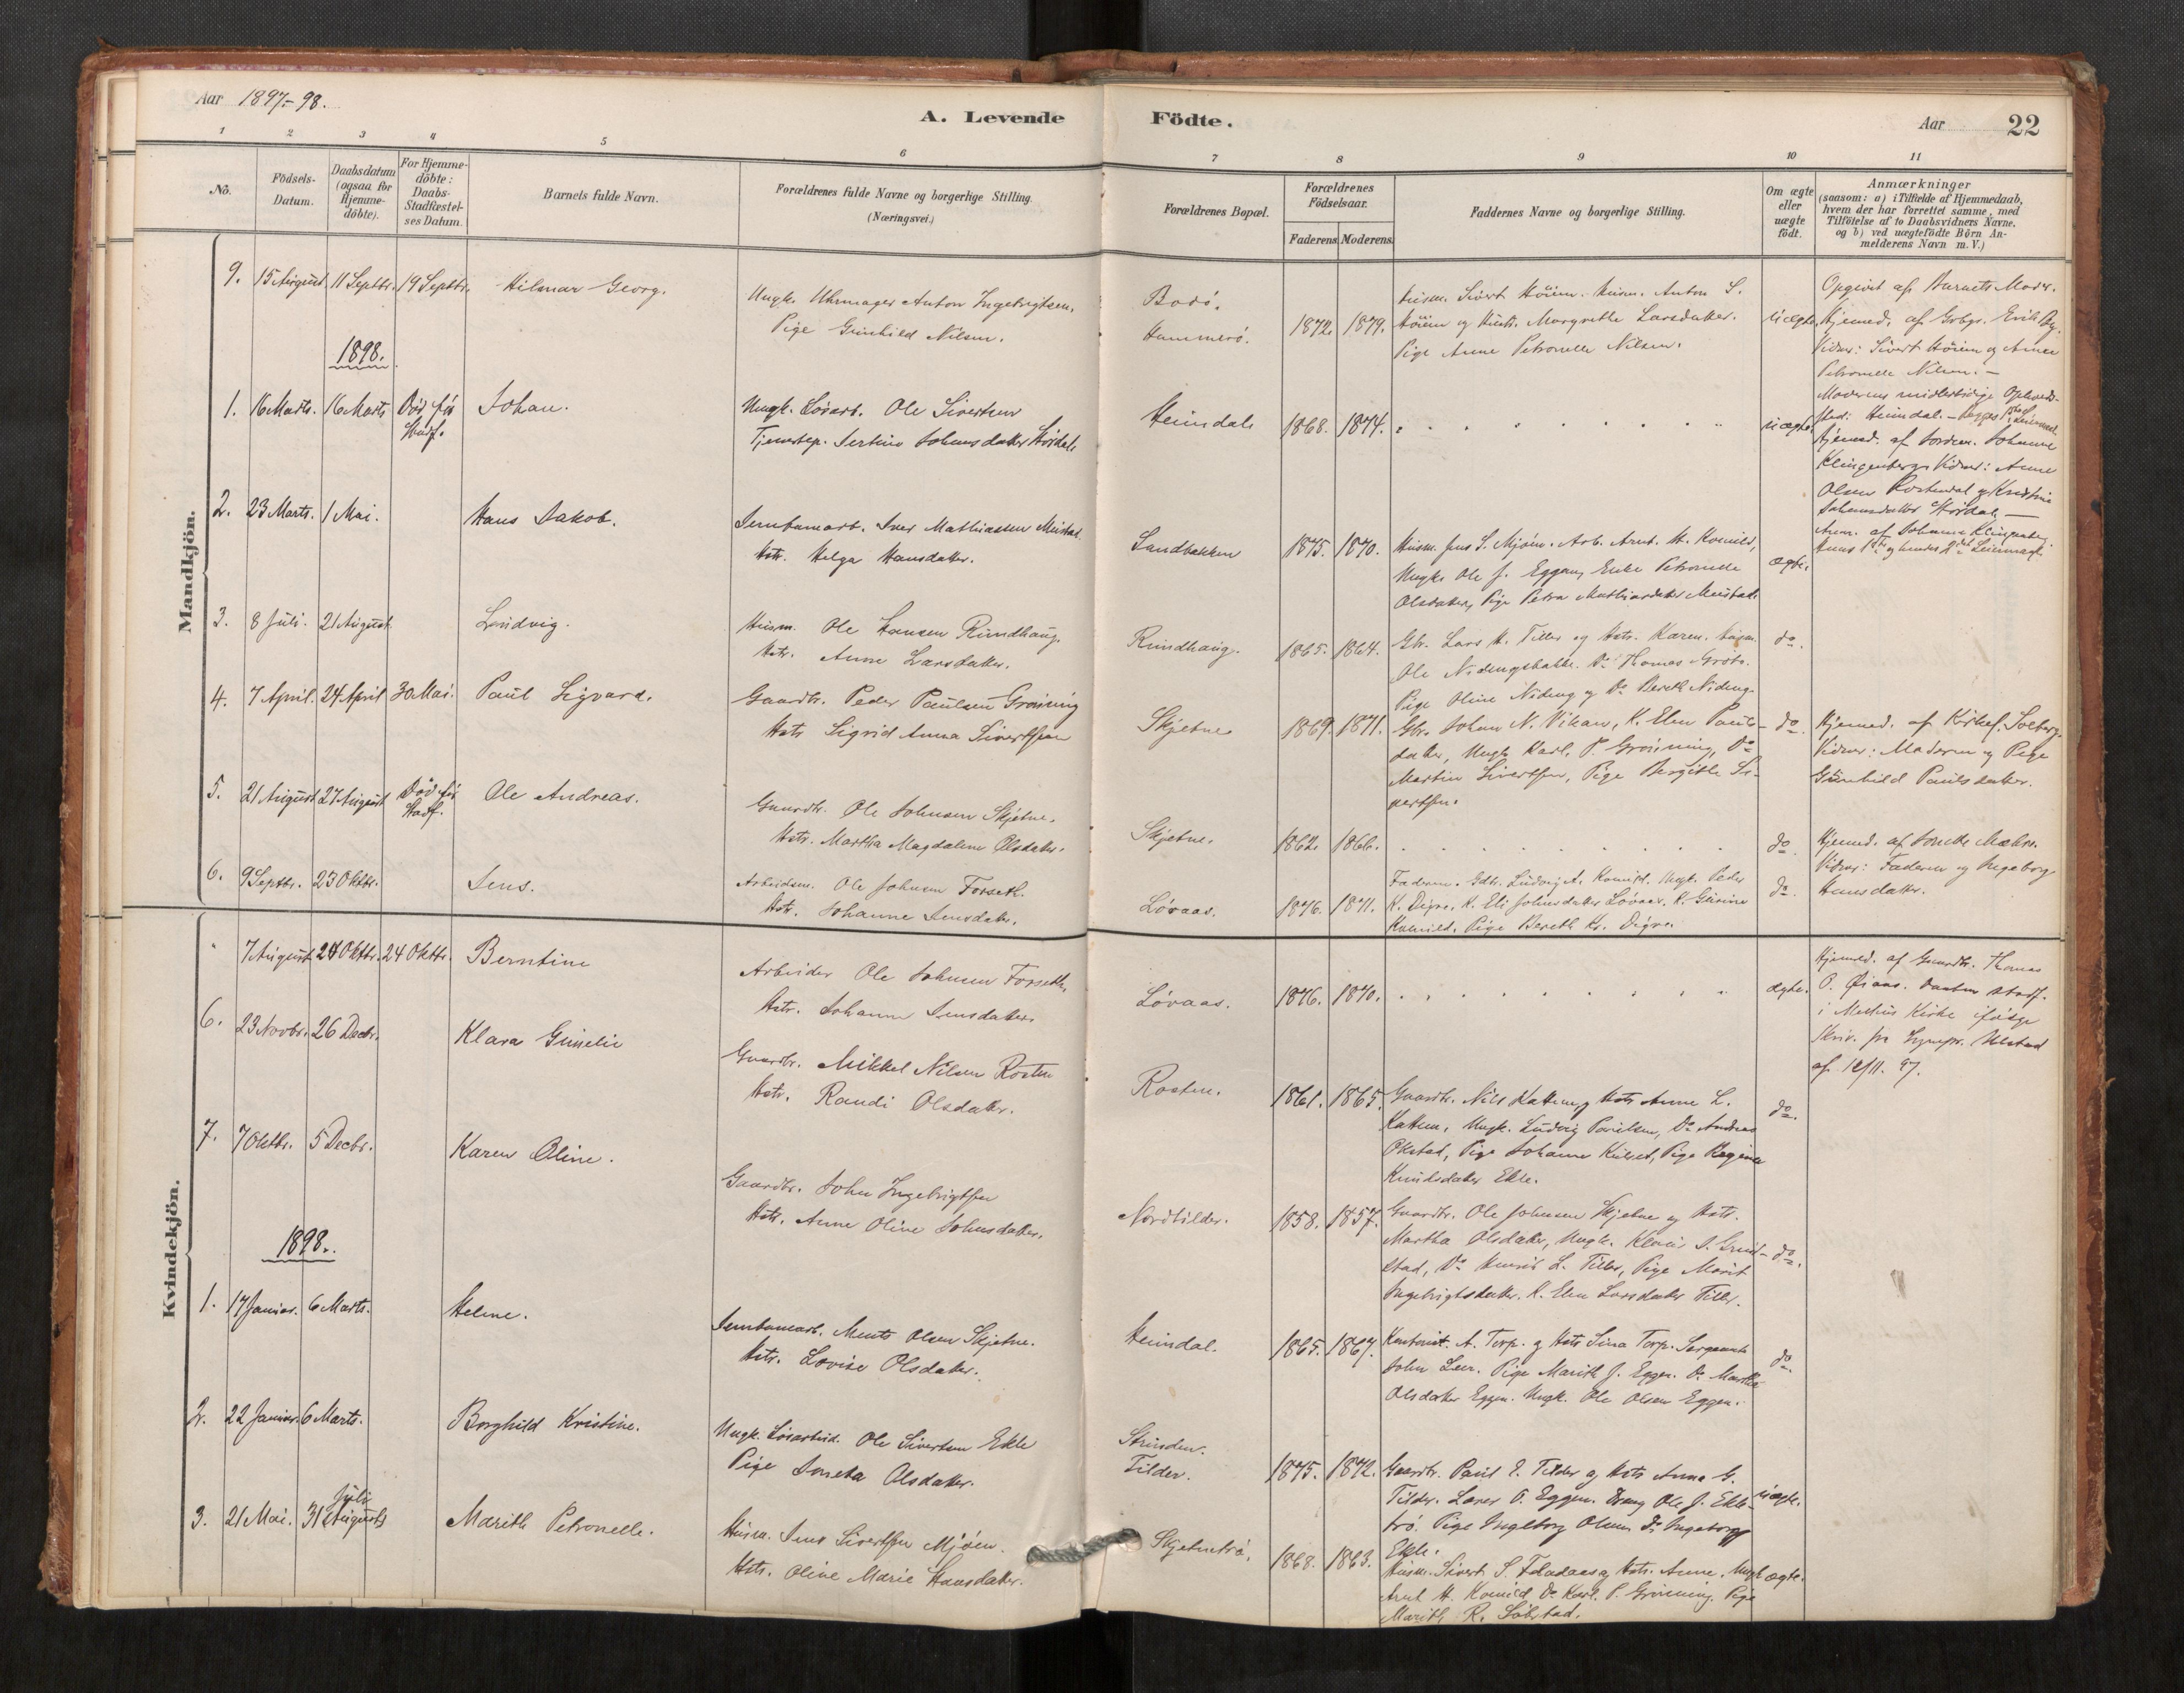 Aar 1897-98.
A. Levende Födte.
Aar 22
1 2 3 4 5 6 7 8 9 10 11
No.
Födsels-Datum.
Daabsdatum (ogsaa for Hjemme-döbte).
For Hjemme-döbte: Daabs-Stadfæstel-ses Datum.
Barnets fulde Navn.
Forældrenes fulde Navne og borgerlige Stilling.
(Næringsvei.)
Forældrenes Bopæl.
Forældrenes Födselsaar.
Faderens. Moderens.
Faddernes Navne og borgerlige Stilling.
Om ægte eller uægte födt.
Anmærkninger
(saasom: a) i Tilfælde af Hjemmedaab,
hvem der har forrettet samme, med
Tilföielse af to Daabsvidners Navne,
og b) ved uægtefödte Börn An-
melderens Navn m. V.)
Mandkjön.
9. 15 August. 11 Septbr. 19 Septbr. Hilmar Georg.
Ungk. Uhrmager Anton Ingebrigtsen.
Pige Gunhild Nilsen.
Bodö.
Hammerö.
1872. 1879.
Husm. Sivert Höiem. Husm. Anton S.
Höiem og Hustr. Margrethe Larsdatter.
Pige Anne Petronelle Nilsen.
uægte.
Opgivet af Barnets Moder.
Hjemmed. af Grbgr. Erik
Vidner: Sivert Höiem og Anne
Petronelle Nilsen.
1898.
1. 16 Marts. 16 Marts Död før Stadf. Johan.
Ungk. Løsarb. Ole Sivertsen
Tjenestep. Sertine Johnsdatter Hördal
Heimdal
1868. 1874.
uægte.
Moderens midlertidige Opholds-
sted: Heimdal.
Hjemmed. af Jordm. Johanne
Klingenberg. Vidner: Anne
Olsen Rostendal og Kristine
Johansdatter Hördal
Anm. af Johanne Klingenberg.
2. 23 Marts. 1 Mai. Hans Jakob.
Jernbanearb. Iver Mathiassen Meistad.
Hstr. Helga Hansdatter.
Sandbakken
1875. 1870.
Husm. Jens S. Mjöen. Arb. Arnt H. Komild,
Ungk. Ole J. Eggen, Enke Petronelle
Olsdatter, Pige Petra Mathiasdatter Meistad.
ægte.
3. 8 Juli. 21 August Ludvig.
Husm. Ole Hansen Rundhaug.
Hstr. Anne Larsdatter.
Rundhaug.
1865. 1864.
Gbr. Lars H. Tiller og Hstr. Karen. Husm.
Ole Nidengsbakke. Do Thomas
Pige Oline Nideng og Do Bereth Nideng.
do.
4. 7 April. 24 April 30 Mai. Paul Sigvard.
Gaardbr. Peder Paulsen Gröning
Hstr Sigrid Anna Sivertsen
Skjetne
1869. 1871.
Gbr. Johan N. Vikan, K. Elen Pauls-
datter, Ungk. Karl. P. Gröning, Do
Martin Sivertsen, Pige Bergitte Si-
vertsen.
do.
Hjemmed. af Kirkes. Solberg.
Vidner: Moderen og Pige
Gunhild Paulsdatter.
5. 21 August 27 August Död før Stadf. Ole Andreas.
Gaardbr. Ole Johnsen Skjetne.
Hstr. Martha Magdalena Olsdatter.
Skjetne.
1862. 1866.
do.
Hjemmed. af
Vidner: Faderen og Ingeborg
Hansdatter.
6. 9 Septbr. 23 Oktbr. Jens.
Arbeidsm. Ole Johnsen Forseth.
Hstr. Johanne Jensdatter.
Lövaas.
1876. 1871.
Faderen. Gdbr. Ludvig A. Komild. Ungk. Peder
K. Digre. K. Eli Johnsdatter Lövaas. K. Gurine
Komild. Pige Bereth Kr. Digre.
do.
Kvindekjön.
7 August 24 Oktbr. 24 Oktbr. Berntine
Arbeider Ole Johnsen Forseth
Hstr. Johanne Jensdatter
Lövaas.
1876. 1870.
ægte.
Hjemmed. af Gaardbr. Thomas
O. Øiaas. Daaben stadf.
i Melhus Kirke ifölge
Skriv. fra Sognepr. Ulstad
af 12/11. 97.
6. 23 Novbr. 26 Decbr. Klara Gunelie
Gaardbr. Mikkel Nilsen Rosten
Hstr. Randi Olsdatter.
Rosten.
1861. 1865.
Gaardbr. Nils Kattem og Hstr Anne L.
Kattem, Ungk. Ludvig Paulsen, Do Andreas
Okstad, Pige Johanna Kulset, Pige Regine
Knudsdatter Ekle.
do.
7. 7 Oktbr. 5 Decbr. Karen Oline.
Gaardbr. John Ingebrigtsen
Hstr. Anne Oline Johnsdatter.
Nordtilder.
1858. 1857.
Gaardbr. Ole Johnsen Skjetne og Hstr.
Martha Olsdatter, Ungk.
stad, Do L. Tiller, Pige Marit
Ingebrigtsdatter. K. Elen Larsdatter Tiller.
do.
1898.
1. 17 Januar. 6 Marts. Helene.
Jernbanearb. Ments Olsen Skjetne.
Hstr. Lovise Olsdatter.
Heimdal.
1865. 1867.
Kontorist. A. Torp. og Hstr Sina Torp. Sergeant
John Leer. Pige Marith J. Eggen. Do Martha
Olsdatter Eggen. Ungk. Ole Olsen Eggen.
do.
2. 22 Januar. 6 Marts. Borghild Kristine.
Ungk. Løsarbeid. Ole Sivertsen Ekle
Pige Olsdatter.
Strinden.
Tilder.
1875. 1872.
Gaardbr. Paul E. Tilder og Hstr Anna G.
Tilder. O. Eggen. Dreng Ole J. Ekle-
trö. Pige Ingeborg Olsen Do Ingeborg
Ekle.
uægte.
3. 21 Mai. 31 Juli August Marith Petronelle.
Husm. Jens Sivertsen Mjöen.
Hstr. Oline Marie Hansdatter.
Skjetnetrö.
1868. 1863.
Husm. Sivert S. Fladaas og Hstr. Anne. Ungk
Arnt H. Komild Do Karl. P. Gröning. Pige
Marith R. Sölstad.
ægte.